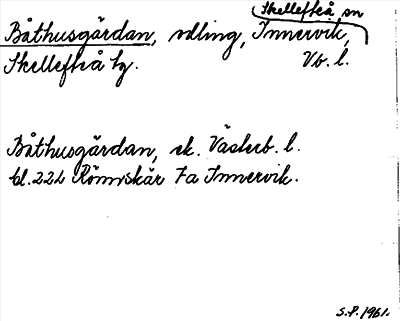 Skellefteå sn
Båthusgärdan, odling, Innervik,
Skellefteå tg. Vb. l.
Båthusgärdan, ek. Västerb. l.
bl. 222 Rönnskär 7a Innervik.
S.P. 1961.